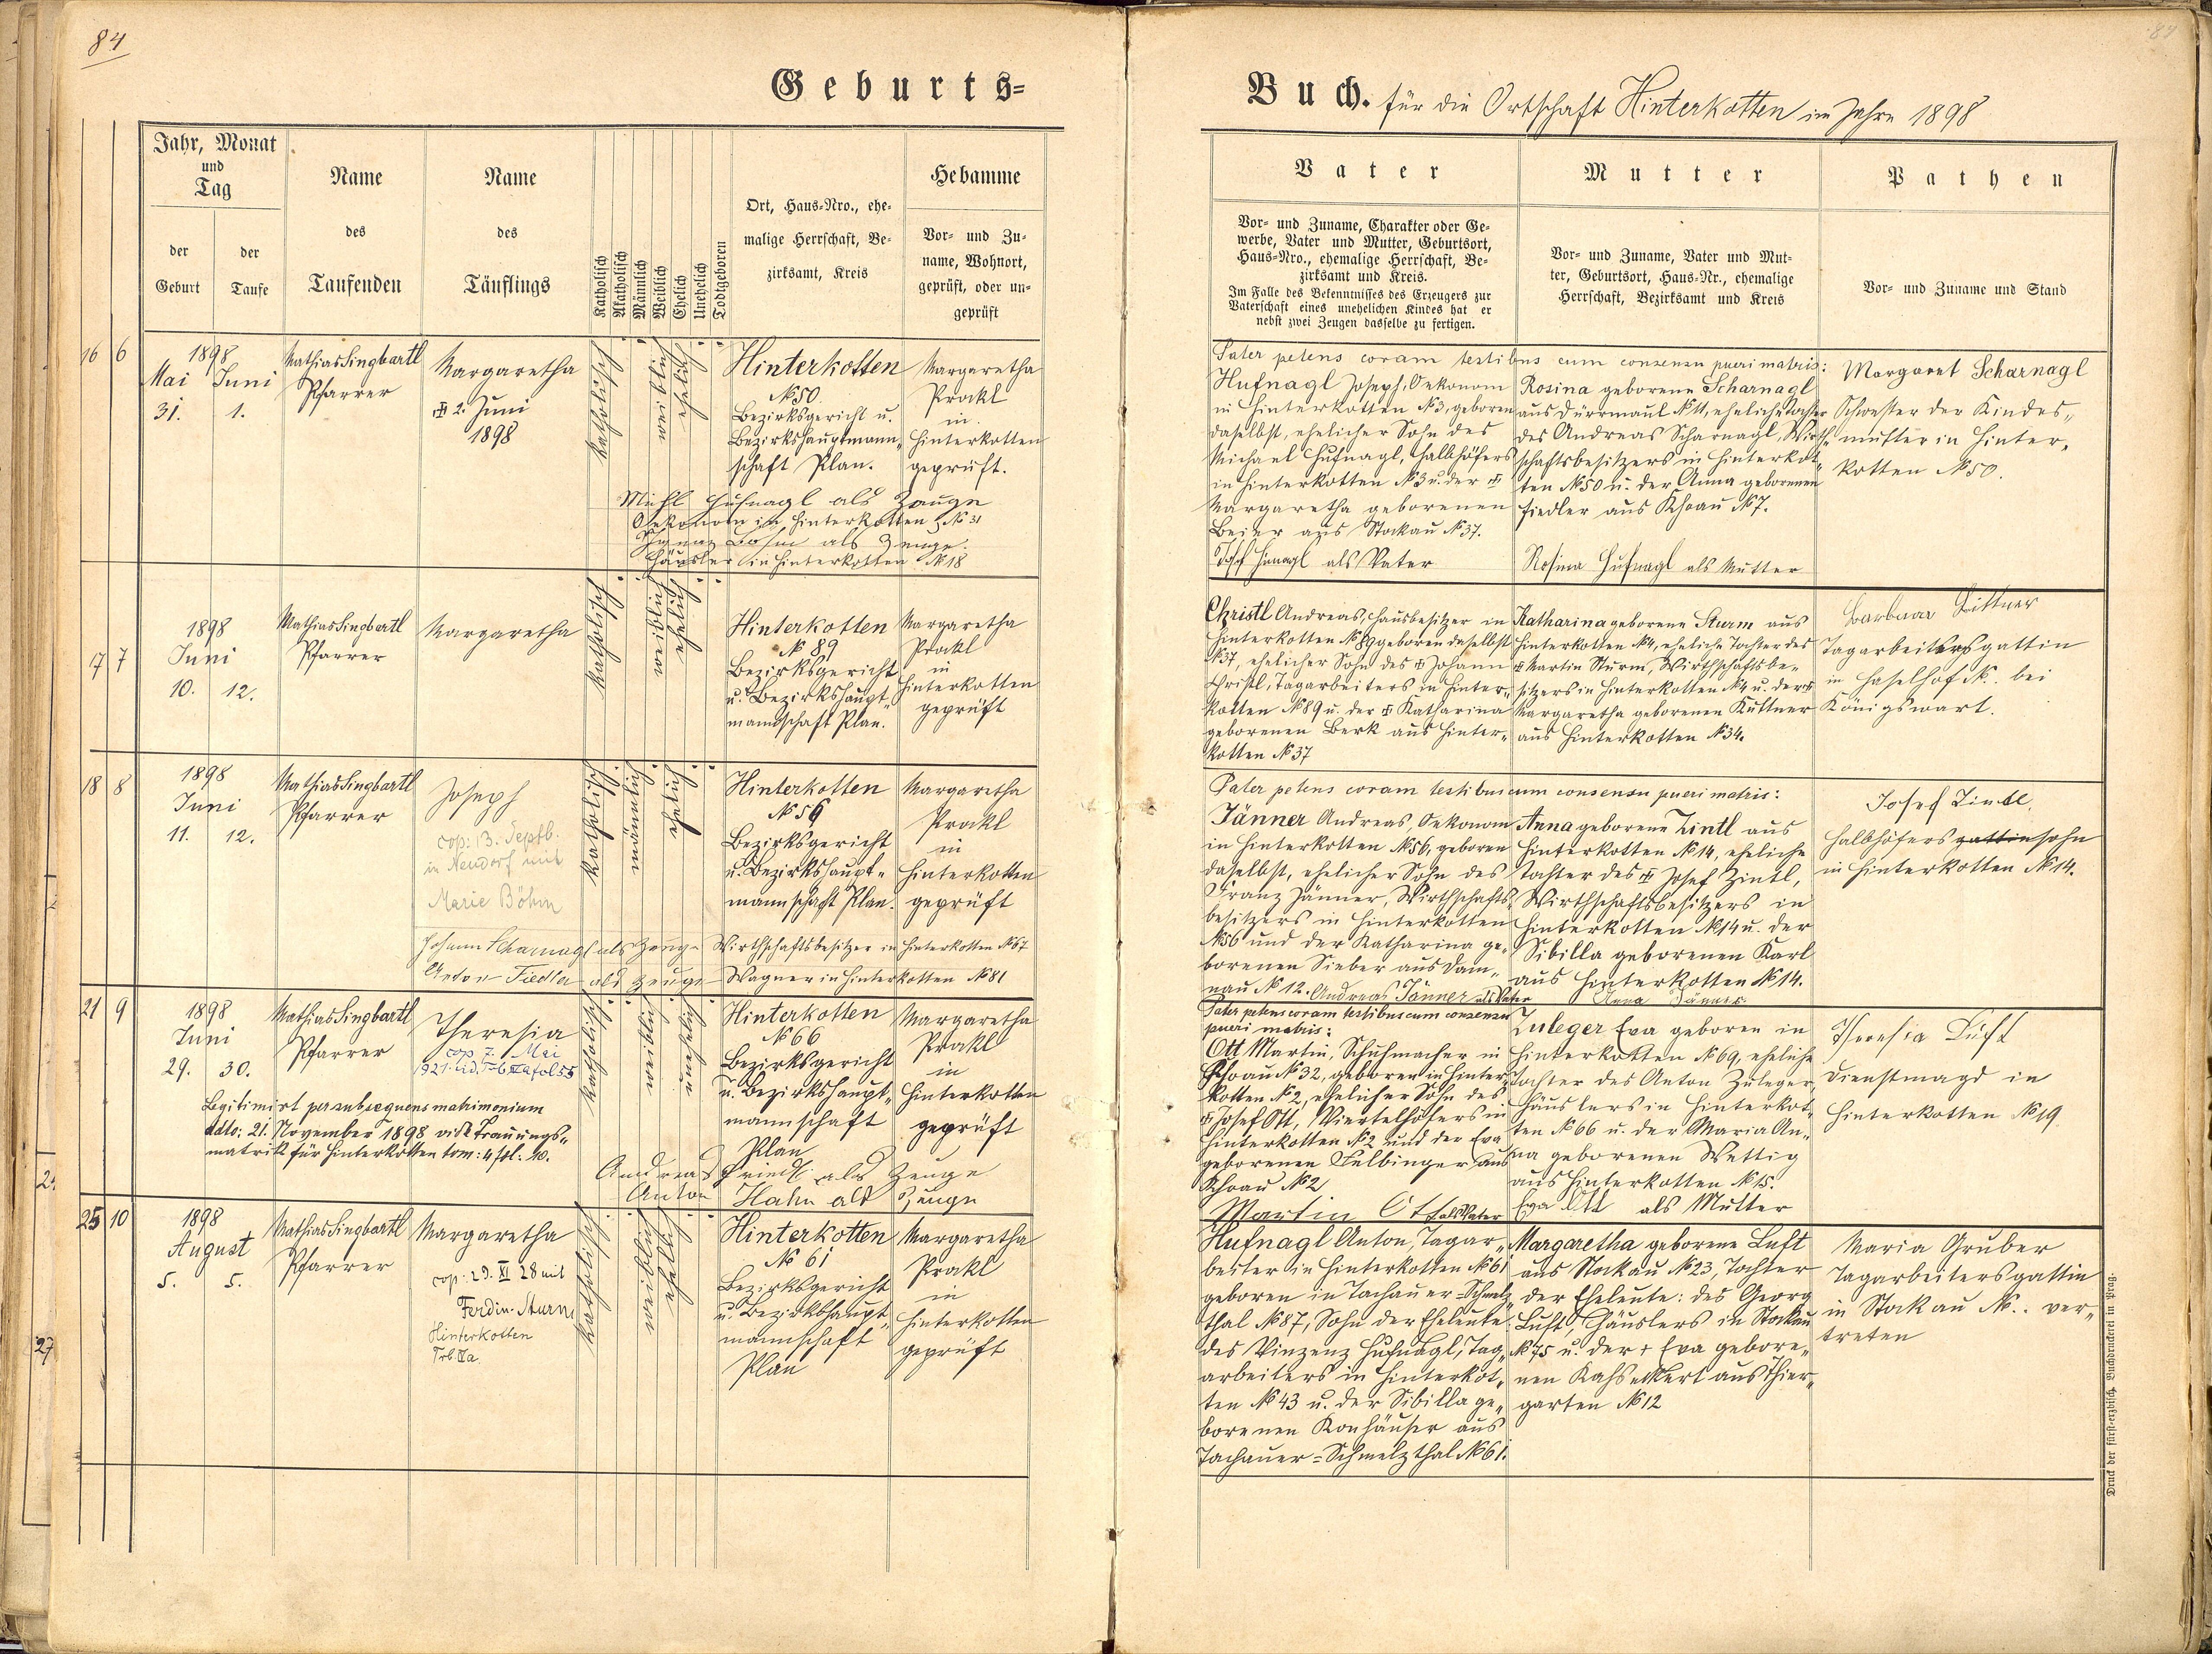 84
84
Geburts=
Buch. für die Ortschaft Hinterkotten im Jahre 1898
Jahr, Monat
und
Tag
der
Geburt
der
Taufe
Name
des
Taufenden
Name
des
Täuflings
Katholisch
Akatholisch
Männlich
Weiblich
Ehelich
Unehelich
Todtgeboren
Ort, Haus-Nro., ehe-
malige Herrschaft, Be-
zirksamt, Kreis
Hebamme
Vor- und Zu-
name, Wohnort,
geprüft, oder un-
geprüft
Vater
Vor- und Zuname, Charakter oder Ge-
werbe, Vater und Mutter, Geburtsort,
Haus-Nro., ehemalige Herrschaft, Be-
zirksamt und Kreis.
Im Falle des Bekenntnisses des Erzeugers zur
Vaterschaft eines unehelichen Kindes hat er
nebst zwei Zeugen dasselbe zu fertigen.
Mutter
Vor- und Zuname, Vater und Mut-
ter, Geburtsort, Haus-Nr., ehemalige
Herrschaft, Bezirksamt und Kreis
Pathen
Vor- und Zuname und Stand
16 6
1898
Mai Juni
31. 1.
Mathias Singbartl
Pfarrer
Margaretha
2. Juni
1898
katholisch
weiblich
ehelich
Hinterkotten
№ 50.
Bezirksgericht u.
Bezirkshauptmann„
schaft Plan.
Margaretha
Prockl
in
Hinterkotten
geprüft.
Michl Hufnagl als Zeuge
Oekonom in Hinterkotten № 31
Ignaz Böhm als Zeuge.
Häusler in Hinterkotten № 18
Pater petens coram testibus cum consensu pueri matris:
Hufnagl Joseph, Oekonom
in Hinterkotten № 3, geboren
daselbst, ehelicher Sohn des
Michael Hufnagl, Halbhöfers
in Hinterkotten № 3 u. der
Margaretha geborenen
Beier aus Stockau № 37.
Josef Hufnagl als Vater
Rosina geborene Scharnagl
aus Dürrmaul № 11, eheliche Tochter
des Andreas Scharnagl, Wirth„
schaftsbesitzers in Hinterkot„
ten № 50 u. der Anna geborenen
Fiedler aus Khoau № 7.
Rosina Hufnagl als Mutter
Margaret Scharnagl
Schwester der Kindes„
mutter in Hinter„
kotten № 50.
17 7
1898
Juni
10. 12.
Mathias Singbartl
Pfarrer
Margaretha
katholisch
weiblich
ehelich
Hinterkotten
№ 89
Bezirksgericht
u. Bezirkshaupt„
mannschaft Plan.
Margaretha
Prockl
in
Hinterkotten
geprüft
Christl Andreas, Hausbesitzer in
Hinterkotten № 89 geboren daselbst
№ 37, ehelicher Sohn des Johann
Christl, Tagarbeiters in Hinter„
kotten № 89 u. der Katharina
geborenen Berk aus Hinter„
kotten № 37
Katharina geborene Sturm aus
Hinterkotten № 4, eheliche Tochter des
Martin Sturm, Wirthschaftsbe„
sitzers in Hinterkotten № 4 u. der
Margaretha geborenen Küttner
aus Hinterkotten № 34.
Barbara Küttner
Tagarbeitersgattin
in Haselhof №. bei
Königswart.
18 8
1898
Juni
11. 12.
Mathias Singbartl
Pfarrer
Joseph
cop: 13. Septb.
in Neudorf mit
Marie Böhm
katholisch
männlich
ehelich
Hinterkotten
№ 56
Bezirksgericht
u. Bezirkshaupt„
mannschaft Plan.
Margaretha
Prockl
in
Hinterkotten
geprüft
Johann Scharnagl als Zeuge Wirthschaftsbesitzer in Hinterkotten № 67
Anton Fiedler als Zeuge Wagner in Hinterkotten № 81
Pater petens coram testibus cum consensu pueri matris:
Jänner Andreas, Oekonom
in Hinterkotten № 56, geboren
daselbst, ehelicher Sohn des
Franz Jänner, Wirthschafts„
besitzers in Hinterkotten
№ 56 und der Katharina ge„
borenen Sieber aus Dam„
nau № 12. Andreas Jänner als Vater
Anna geborene Zintl aus
Hinterkotten № 14, eheliche
Tochter des Josef Zintl,
Wirthschaftsbesitzers in
Hinterkotten № 14 u. der
Sibilla geborenen Karl
aus Hinterkotten № 14.
Anna Jänner
Josef Zintl,
Halbhöfers gattin sohn
in Hinterkotten № 14.
21 9
1898
Juni
29. 30.
Mathias Singbartl
Pfarrer
Theresia
cop. 7. Mai
1921 Lid. Trb. IIa fol 55
Legitimirt per subsequens matrimonium
ddto: 21. November 1898 vide Trauungs„
matrik für Hinterkotten tom: 4 fol: 10.
katholisch
weiblich
unehelich
Hinterkotten
№ 66
Bezirksgericht
u. Bezirkshaupt„
mannschaft
Plan
Margaretha
Prockl
in
Hinterkotten
geprüft
Andreas Friedl als Zeuge
Anton Hahn als Zeuge
Pater petens coram testibus cum consensu
pueri matris:
Ott Martin, Schuhmacher in
Khoau № 32, geboren in Hinter„
kotten № 2, ehelicher Sohn des
Josef Ott, Viertelhöfers in
Hinterkotten № 2 und der Eva
geborenen Felbinger aus
Khoau № 2
Martin Ott als Vater
Zuleger Eva geboren in
Hinterkotten № 69, eheliche
Tochter des Anton Zuleger,
Häuslers in Hinterkot„
ten № 66 u. der Maria An„
na geborenen Wettig
aus Hinterkotten № 15.
Eva Ott als Mutter
Theresia Luft
Dienstmagd in
Hinterkotten № 19
25 10
1898
August
5. 5.
Mathias Singbartl
Pfarrer
Margaretha
cop. 29. XI 28 mit
Ferdin. Sturm
Hinterkotten
Trb. IIa.
katholisch
weiblich
ehelich
Hinterkotten
№ 61
Bezirksgericht
u. Bezirkshaupt„
mannschaft
Plan
Margaretha
Prockl
in
Hinterkotten
geprüft
Hufnagl Anton, Tagar„
beiter in Hinterkotten № 61
geboren in Tachauer-Schmelz„
thal № 87, Sohn der Eheleute:
des Vinzenz Hufnagl, Tag„
arbeiters in Hinterkot„
ten № 43 u. der Sibilla ge„
borenen Konhäuser aus
Tachauer-Schmelzthal № 61.
Margaretha geborene Luft
aus Stockau № 23, Tochter
der Eheleute: des Georg
Luft, Häuslers in Stockau
№ 75 u. der + Eva gebore„
nen aus Thier„
garten № 12
Maria Gruber
Tagarbeitersgattin
in Stockau №.. ver„
treten
24
27
Druck der fürst-erzbisch. Buchdruckerei in Prag.